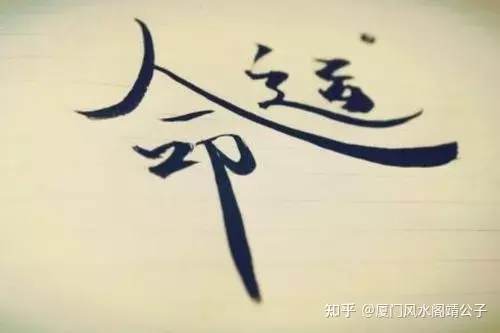 命运
知乎 @厦门风水阁靖公子